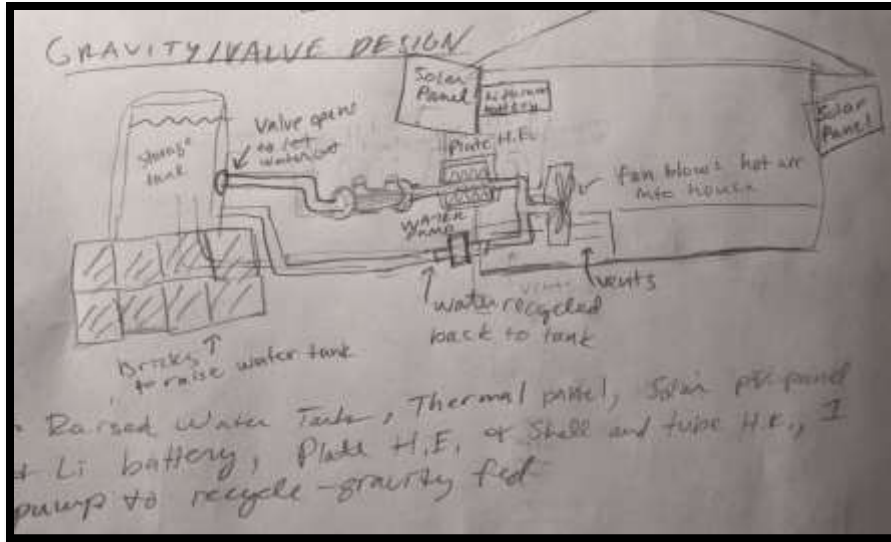 GRAVITY/VALVE DESIGN
Solar
Panel
Lithium
battery
Solar
Panel
Valve opens
to let
water out
Storage
tank
Plate H.E.
fan blows hot air
into house
WATER
PUMP
vents
vents
water recycled
back to tank
Bricks
to raise water tank
Raised Water Tank, Thermal panel, Solar pv panel
Li battery, Plate H.E. or Shell and tube H.E., 1
pump to recycle - gravity fed